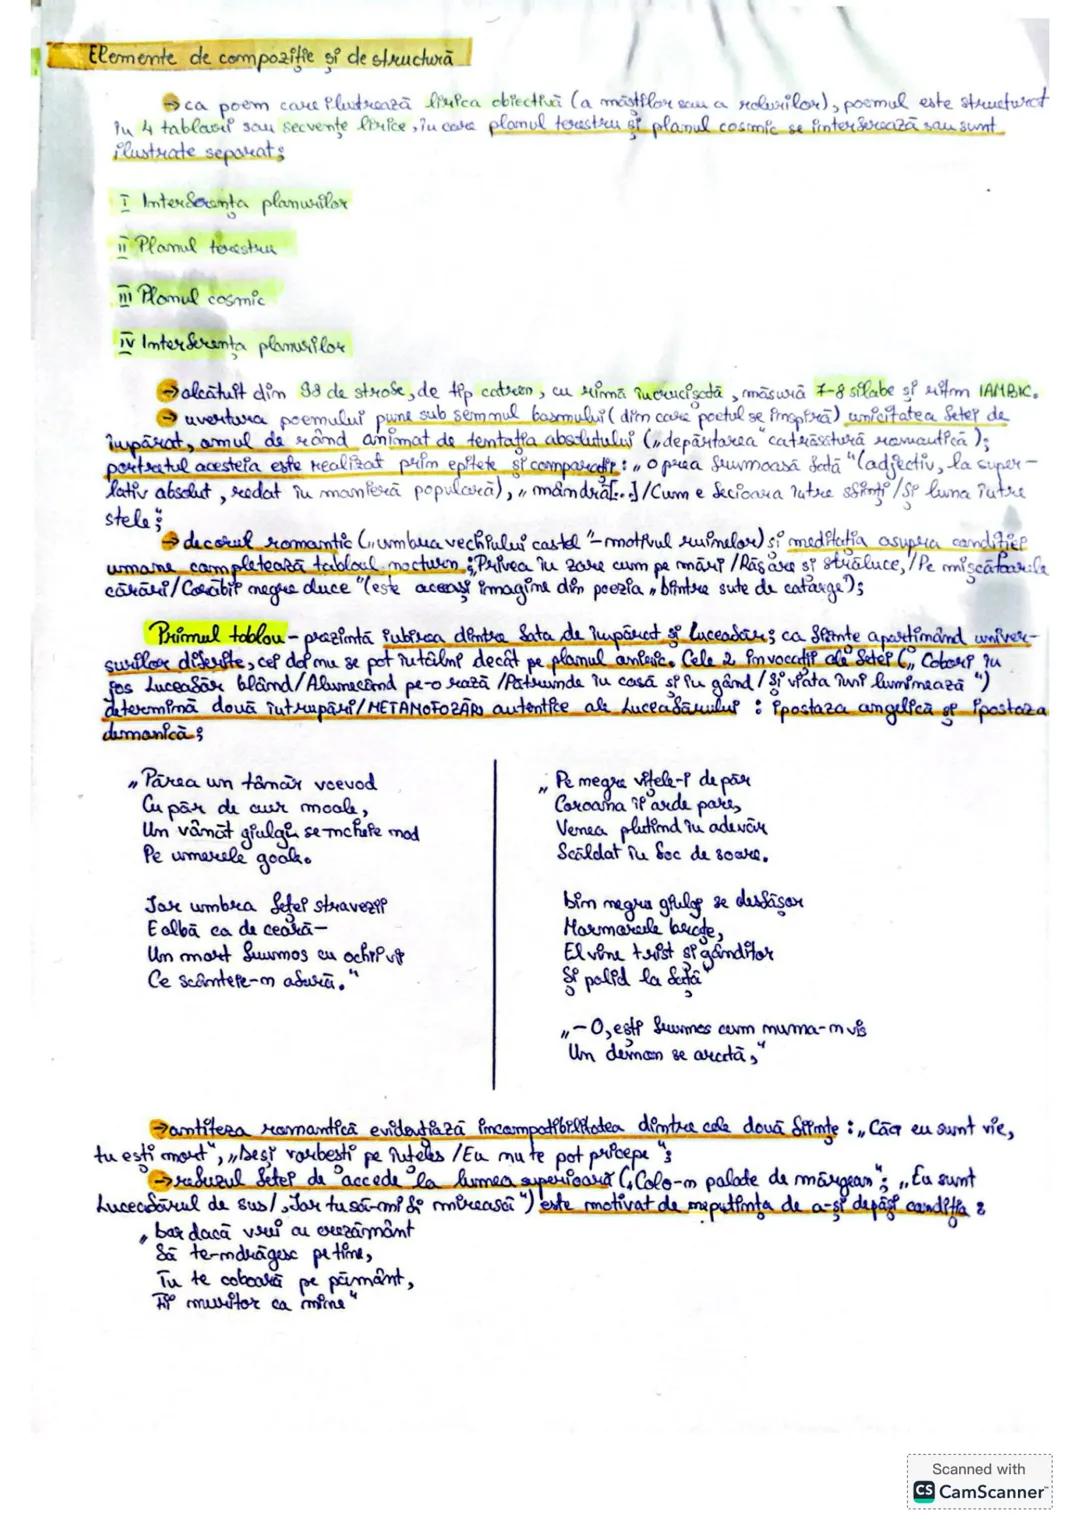 Elemente de compoziție și de structură
→ ca poem care ilustrează lirica obiectivă (a măștilor sau a rolurilor), poemul este structurat
în 4 tablouri sau secvențe lirice, în care planul terestru și planul cosmic se interferează sau sunt
ilustrate separat;
I Interferența planurilor
II Planul terestru
III Planul cosmic
IV Interferența planurilor
→ alcătuit din 98 de strofe, de tip catren, cu rimă încrucișată, măsură 7-8 silabe și ritm IAMBIC.
→ uvertura poemului pune sub semnul basmului (din care poetul se inspiră) unicitatea fetei de
împărat, omul de rând animat de tentația absolutului („depărtarea" ca trăsătură romantică);
portretul acesteia este realizat prin epitete și comparații: „o prea frumoasă fată" (adjectiv, la super-
lativ absolut, redat în manieră populară), „mândră[...]/Cum e fecioara între sfinți/Și luna între
stele";
→ decorul romantic („umbra vechiului castel"-motivul ruinelor) și meditația asupra condiției
umane completează tabloul nocturn: „Privea în zare cum pe mări/Răsare și străluce,/Pe mișcătoarele
cărări/Corăbii negre duce" (este aceeași imagine din poezia „Dintre sute de catarge");
Primul tablou - prezintă iubirea dintre fata de împărat și luceafăr; ca ființe aparținând univer-
surilor diferite, cei doi nu se pot întâlni decât pe planul oniric. Cele 2 invocații ale fetei („ Cobori în
jos Luceafăr blând/Alunecând pe-o rază/Pătrunde în casă și în gând/Și viața îmi luminează")
determină două întrupări/METAMOFOZĂRI autentice ale Luceafărului: ipostaza angelică și ipostaza
demonică;
„Părea un tânăr voevod
Cu păr de aur moale,
Un vânăt giulgi se-ncheie nod
Pe umerele goale.
Iar umbra feței stravezii
E albă ca de ceară-
Un mort frumos cu ochii vii
Ce scânteie-n afară."
„ Pe negre vițele-i de păr
Coroana îi arde pare,
Venea plutind în adevăr
Scăldat în foc de soare.
Din negru giulgi se desfășor
Marmoreele brațe,
El vine trist și gânditor
Și palid la față"
„-O, ești frumos cum numa-n vis
Un demon se arată,"
→ antiteza romantică evidențiază incompatibilitatea dintre cele două ființe: „Căci eu sunt vie,
tu ești mort", „Deși vorbești pe înțeles/Eu nu te pot pricepe";
→ refuzul fetei de a accede la lumea superioară („Colo-n palate de mărgean"; „Eu sunt
Luceafărul de sus/ Iar tu să-mi fii mireasă") este motivat de neputința de a-și depăși condiția:
„ Dar dacă vrei cu crezământ
Să te-ndrăgesc pe tine,
Tu te coboară pe pământ,
Fii muritor ca mine"
Scanned with
CS CamScanner